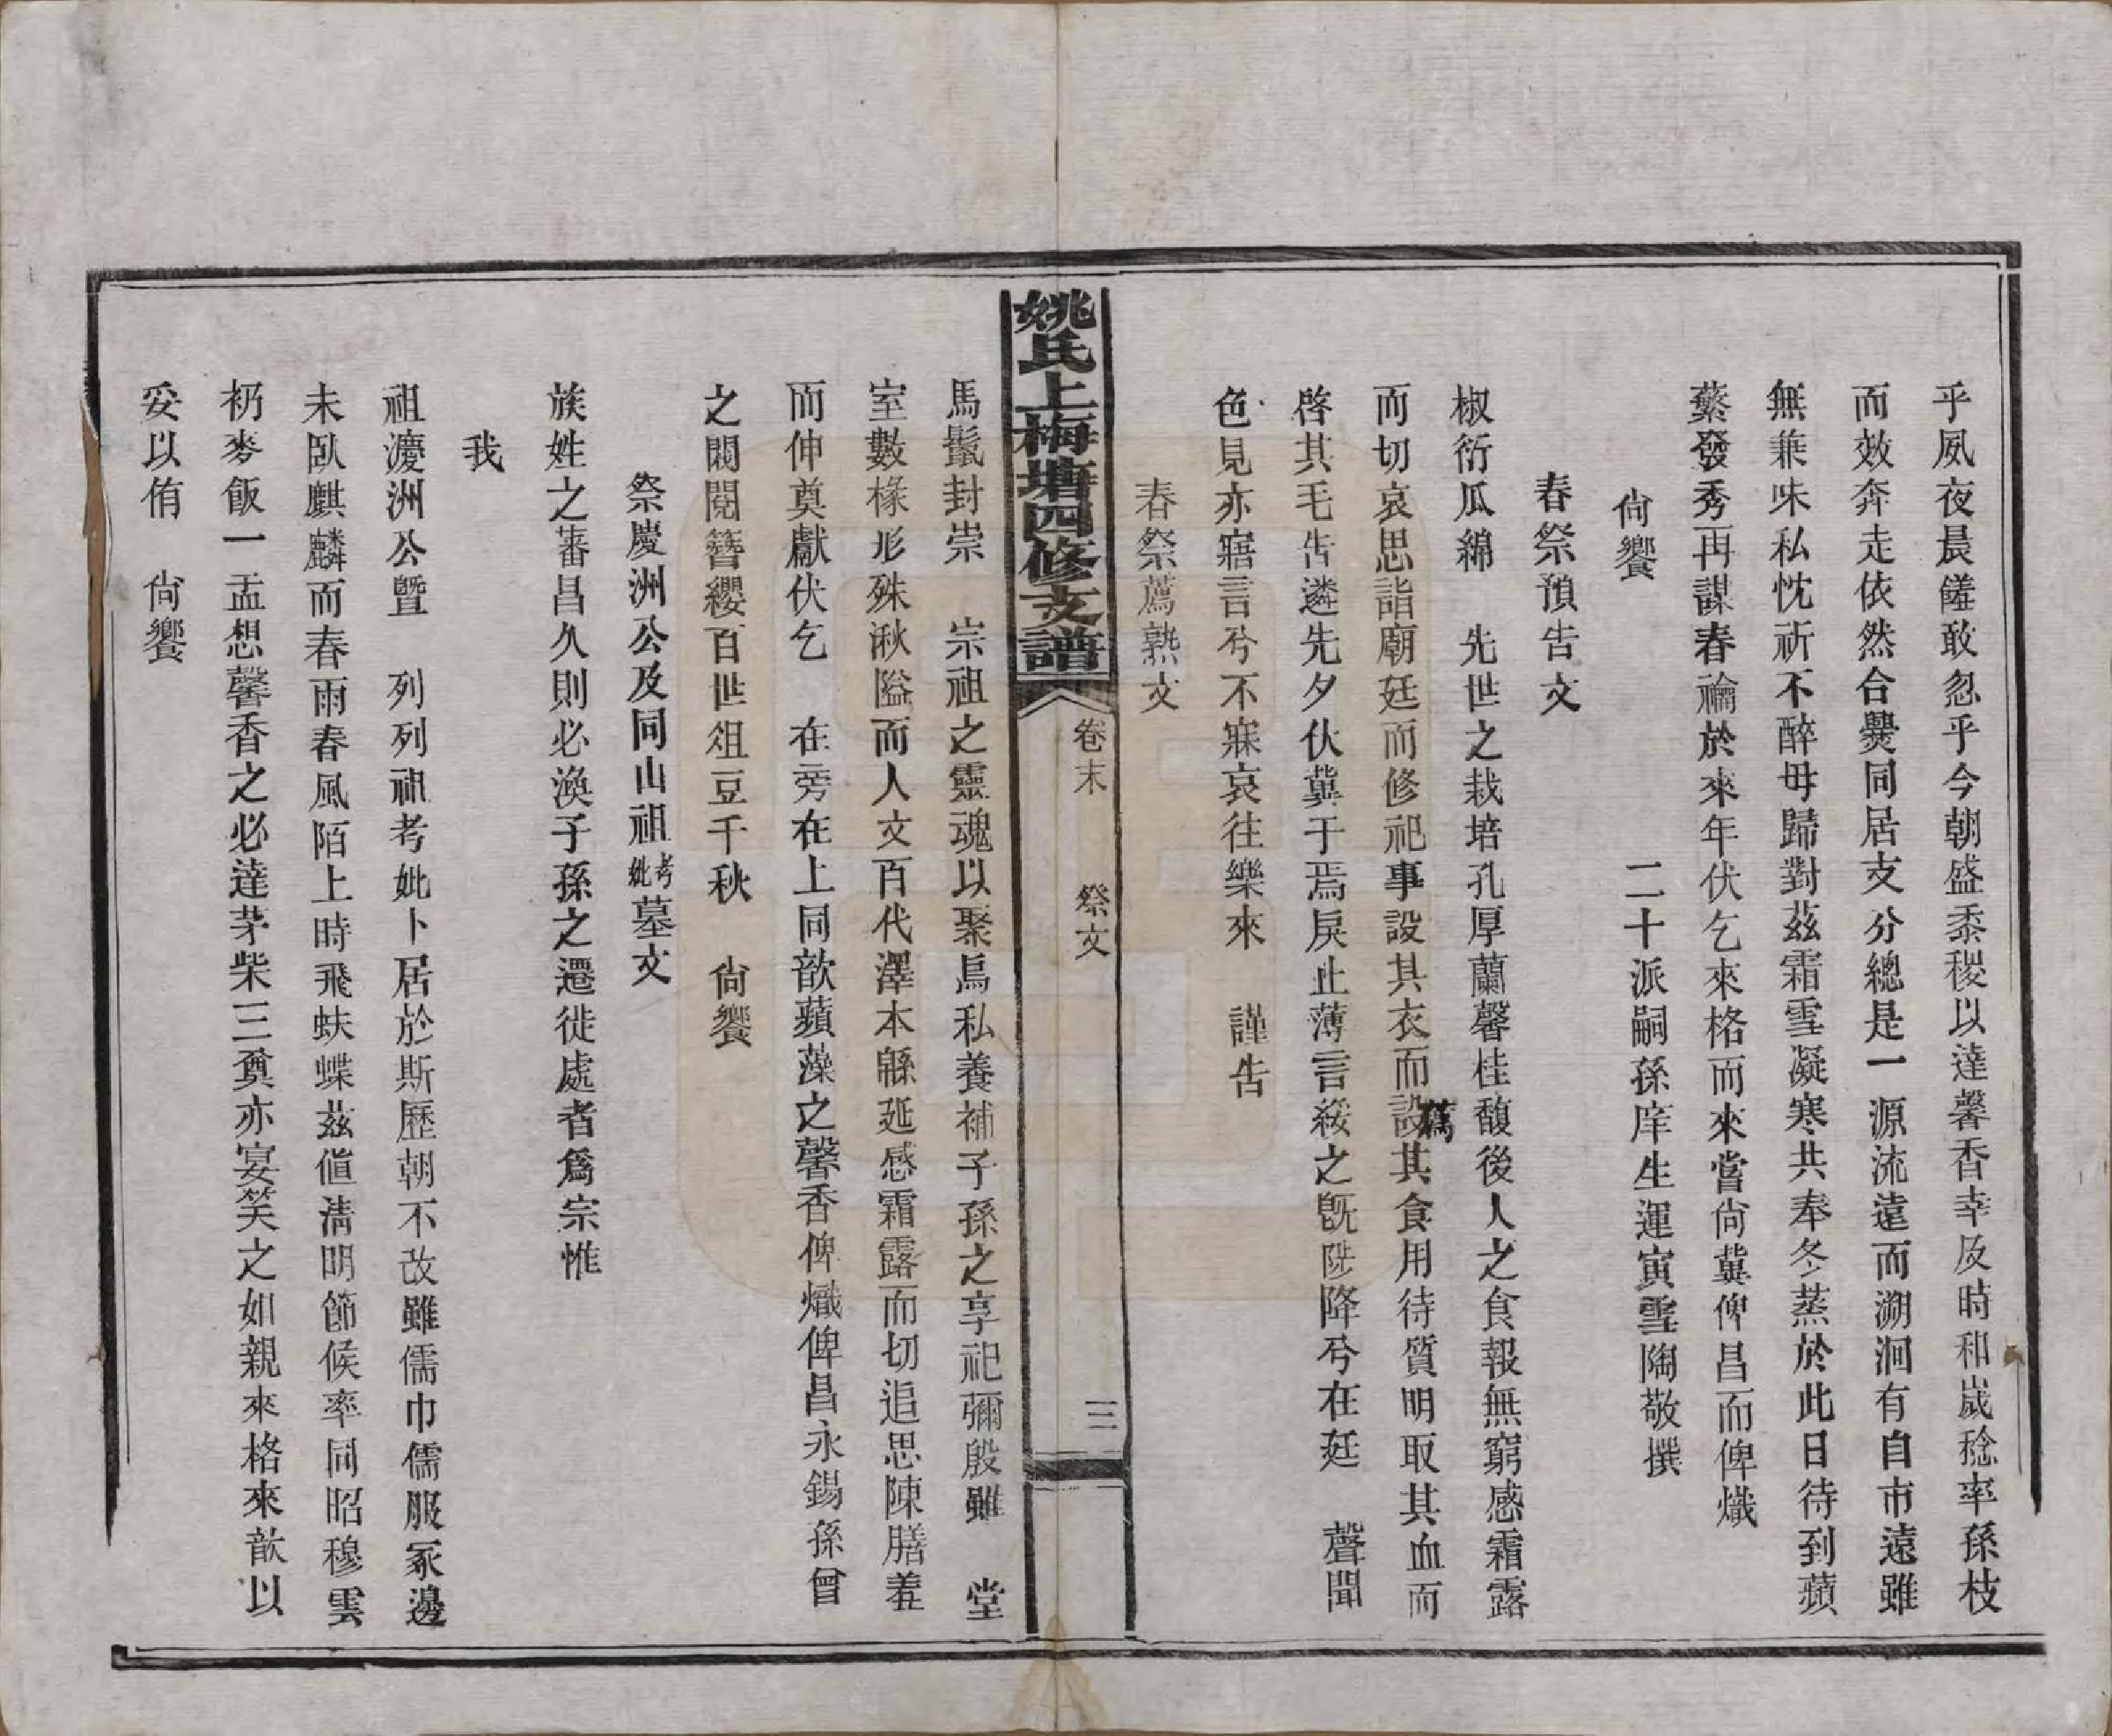 乎夙夜晨饈敢忽乎今朝盛黍稷以達馨香幸及時和歲稔率孫枝
而效奔走依然合爨同居支分總是一源流遠而溯洄有自市遠雖
無兼味私忱祈不醉毋歸對茲霜雪凝寒共奉冬蒸於此日待到蘋
蘩發秀再謀春禴於來年伏乞來格而來嘗尙冀俾昌而俾熾
尙饗　二十派嗣孫庠生運寅雪陶敬撰
春祭預告文
椒衍瓜綿　先世之栽培孔厚蘭馨桂馥後人之食報無窮感霜露
而切哀思詣廟廷而修祀事設其衣而設薦其食用待質明取其血而
啓其毛告遴先夕伙冀于焉戾止薄言綏之旣陟降兮在廷　聲聞
色見亦寤言兮不寐哀往樂來　謹告
春祭薦熟文
姚氏上梅塘四修支譜　卷末　祭文　三
馬鬛封崇　宗祖之靈魂以聚烏私養補子孫之享祀彌殷雖　堂
室數椽形殊湫隘而人文百代澤本緜延感霜露而切追思陳膳羞
而伸奠獻伏乞　在旁在上同歆蘋藻之馨香俾熾俾昌永錫孫曾
之閥閱簪纓百世俎豆千秋　尙饗
祭慶洲公及同山祖考妣墓文
族姓之蕃昌久則必渙子孫之遷徙處者爲宗惟
我
祖慶洲公曁　列列祖考妣卜居於斯歷朝不改雖儒巾儒服冢邊
未臥麒麟而春雨春風陌上時飛蚨蝶茲値淸明節候率同昭穆雲
礽麥飯一盂想馨香之必達茅柴三奠亦宴笑之如親來格來歆以
妥以侑　尙饗